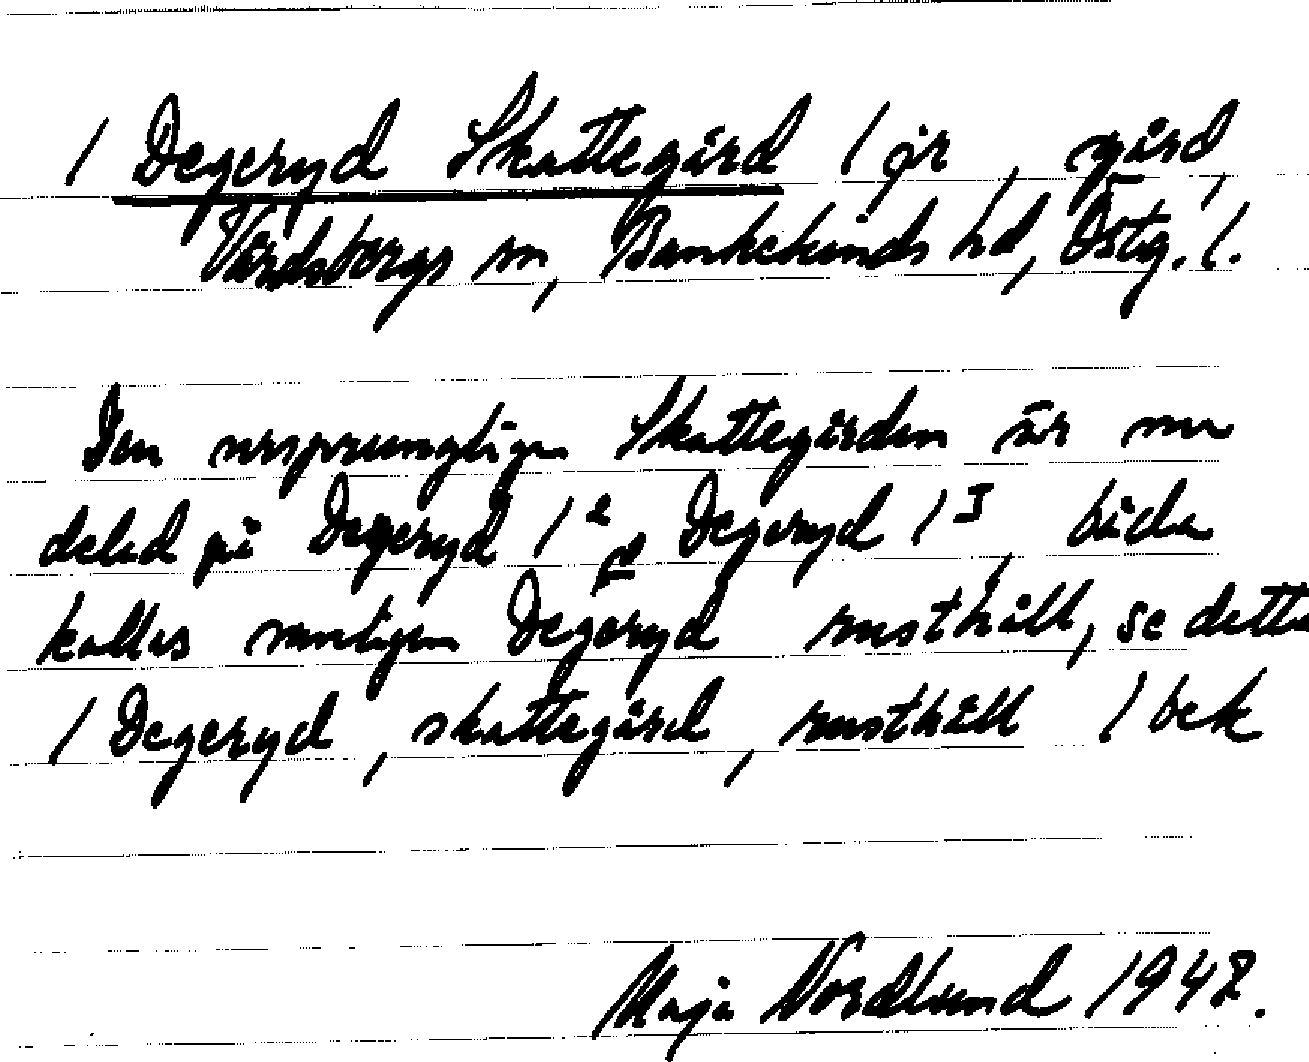 / Degeryd Skattegård / jr, gård,
Vårdsbergs sn, Bankekinds hd, Östg. l.
Den ursprungliga Skattegården är nu
delad på Degeryd 1² o Degeryd 1³, båda
kallas vanligen Degeryd rusthåll, se detta
/ Degeryd, skattegård, rusthåll / bek
Maja Nordlund 1942.